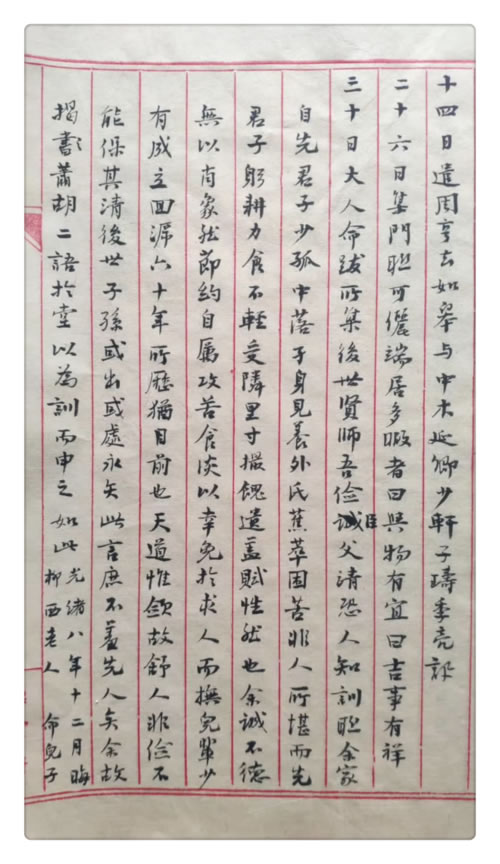 十四日遣周亨去如皋与中木延卿少軒子璹季亮訊
二十六日集門聯可儷端居多暇者曰與物有宜曰吉事有祥
三十日大人命跋所集後世賢師吾儉誠臣父清恐人知訓聯余家
自先君子少孤中落孑身見養外氏蕉萃困苦非人所堪而先
君子躬耕力食不輕受隣里寸撮餽遺蓋賦性然也余誠不德
無以肖象然節約自厲攻苦食淡以幸免於求人而撫兒輩少
有成立回溯六十年所歷猶目前也天道惟斂故舒人非儉不
能保其清後世子孫或出或處永矢此言庶不羞先人矣余故
揭書蕭胡二語於堂以為訓而申之如此光緒八年十二月晦
柳西老人 命兒子